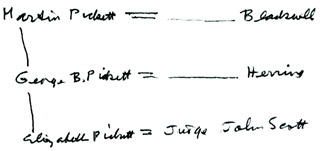 Martin Pickett = ______ Blackwell
George B. Pickett = ______ Herring
Elizabeth Pickett = Judge John Scott